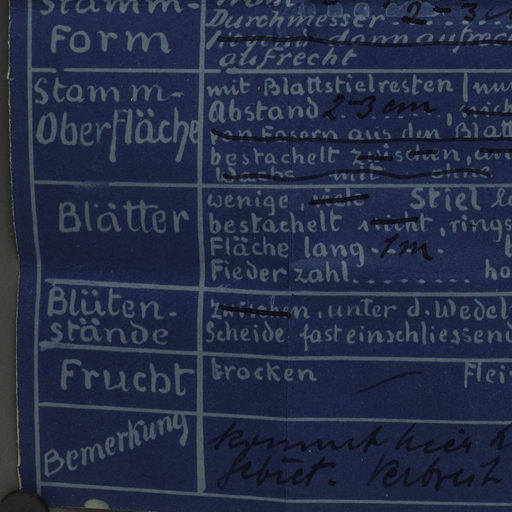 Stamm-
Form
Durchmesser 2-3
liegend dann aufrecht
aufrecht
Stamm-
Oberfläche
mit Blattstielresten
Abstand 2-3 cm,
von Fasern aus den Blatt
bestachelt zwischen,
Wachs mit ohne
Blätter
wenige, viele Stiel
bestachelt nicht, rings
Fläche lang 1 m.
Fiederzahl.........
Blüten-
stände
zwischen, unter d. Wedel
Scheide fast einschliessend
Frucht
trocken Flei
Bemerkung
kommt hier
Gebiet.